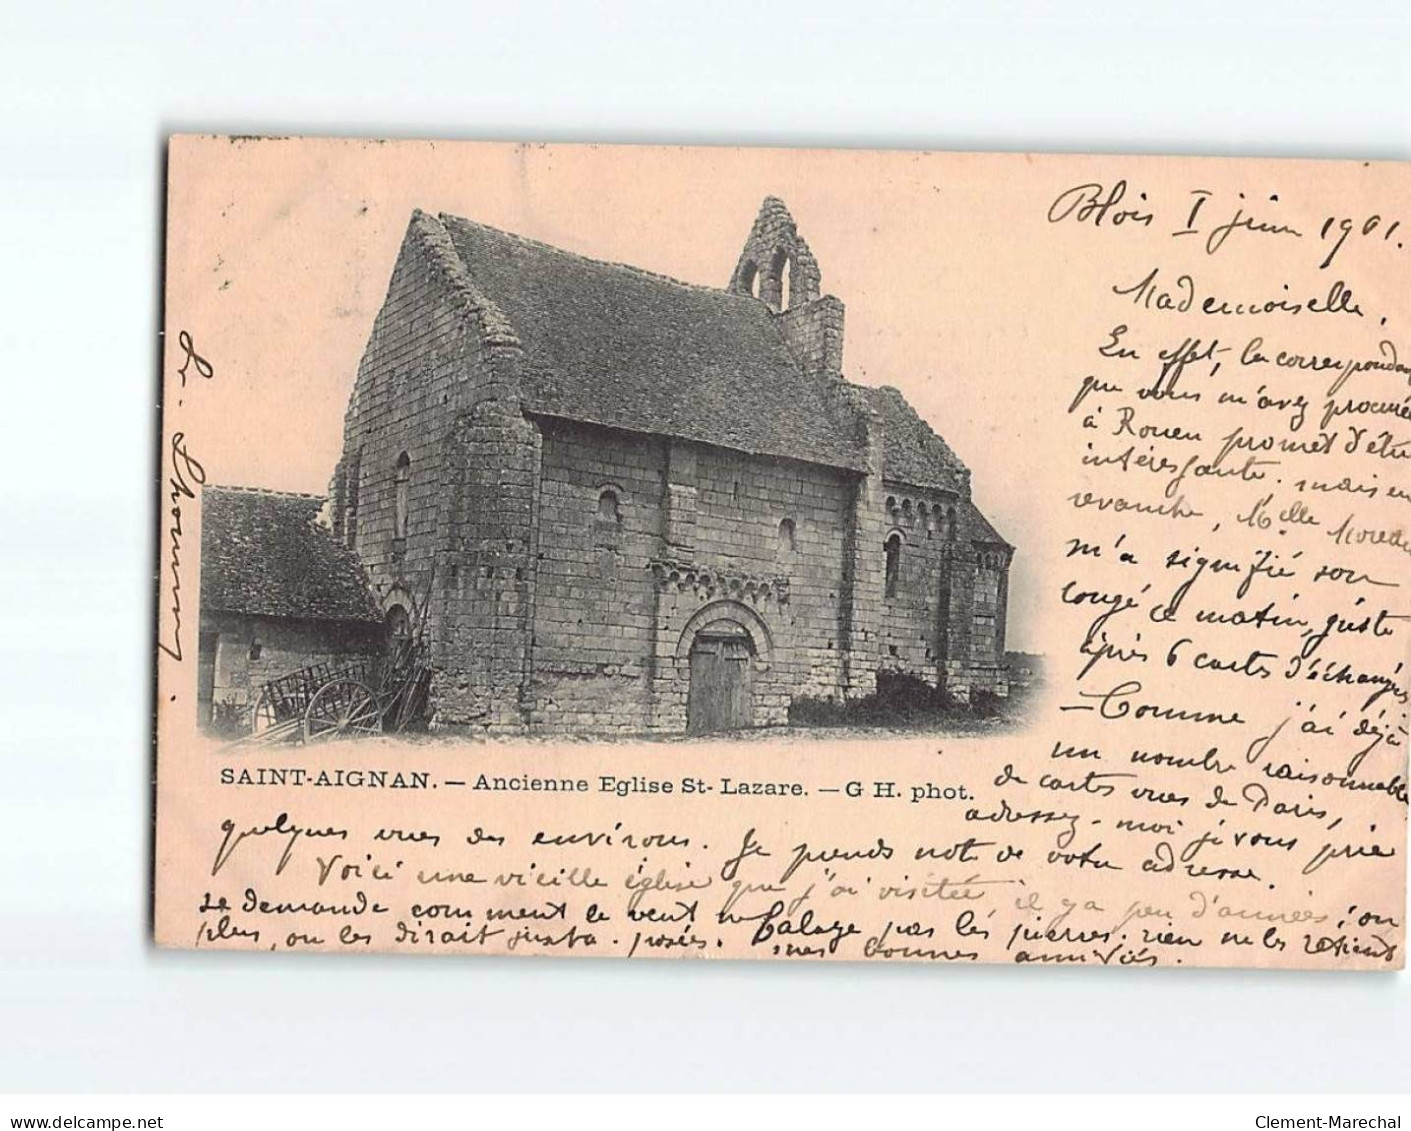 Blois 1 juin 1901.
Mademoiselle,
En effet, la correspondan
que vous m'avez procurée
à Rouen promet d'être
intéressante. mais en
revanche, Melle Moreau
m'a signifié son
congé ce matin, juste
après 6 cartes d'échangées
- Comme j'ai déjà
un nombre raisonnable
de cartes vues de Paris,
adressez-moi je vous prie
SAINT-AIGNAN. — Ancienne Eglise St-Lazare. — G H. phot.
quelques vues des environs. Je prends note de votre adresse.
Voici une vieille église que j'ai visitée il y a peu d'années; on
se demande comment le vent ne balaye pas les pierres. rien ne les retient
plus, on les dirait juste posées. mes bonnes amitiés.
delcampe.net
Clement-Marechal